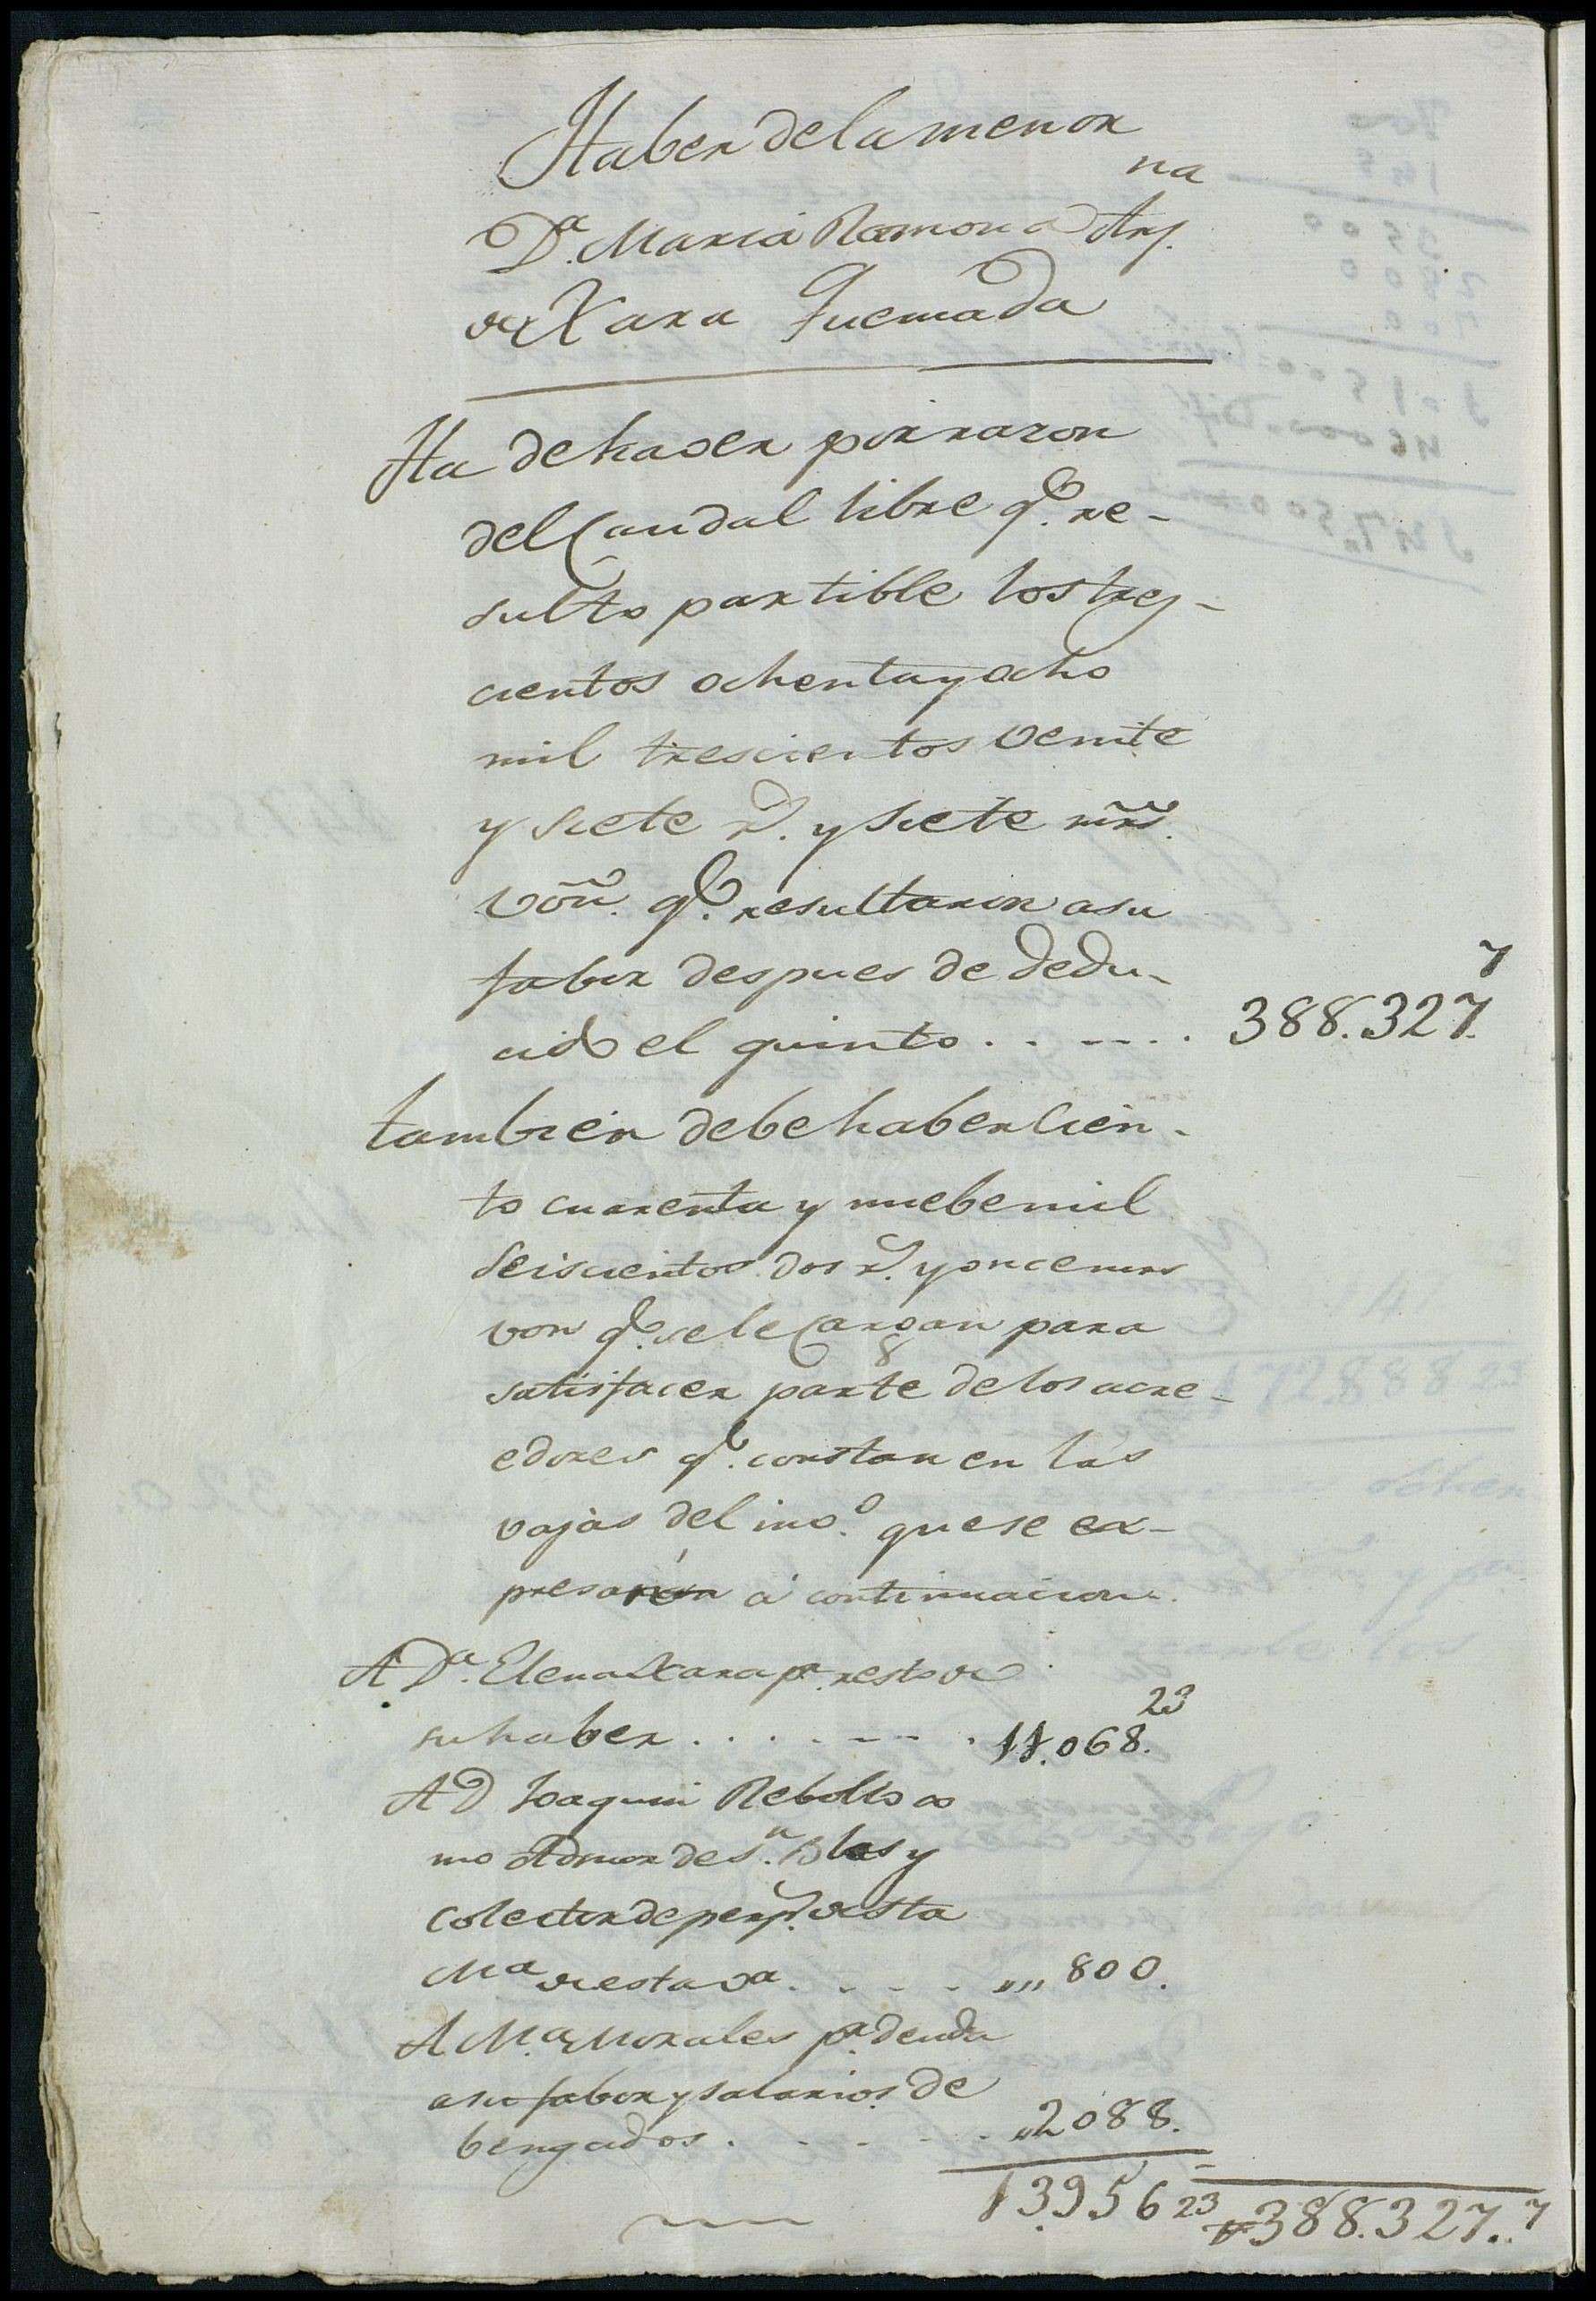 Haber dela menor
Dª. Maria Ramona Anj.na
de Xara Quemada
Ha de haver por razon
del Caudal libre q.e re-
sulto partible los tres-
cientos ochenta y ocho
mil trescientos veinte
y siete r.s y siete mrs.
von. q.e resultaron asu
fabor despues de dedu-
cido el quinto . . . . . . 388.327.7
tambien debe haber Cien-
to cuarenta y nuebe mil
seiscientos dos r.s y once mrs
von q.e se le Cargan para
satisfacer parte de los acre-
edores q.e constan en las
vajas del inv.o que se ex-
presarán á continuacion.
A Dª. Elena Xara p.r resto de
su haber . . . . . . . 11.068.23
A D Joaquin Rebollo co
mo Admor de S.n Blas y
Colector de perp.s de sta
M.a de esta va. . . . . ,,,, 800.
A M.a Morales p.r deuda
a su fabor y salarios de
bengados . . . . . ,,2088.
13.956 23 388.327..7